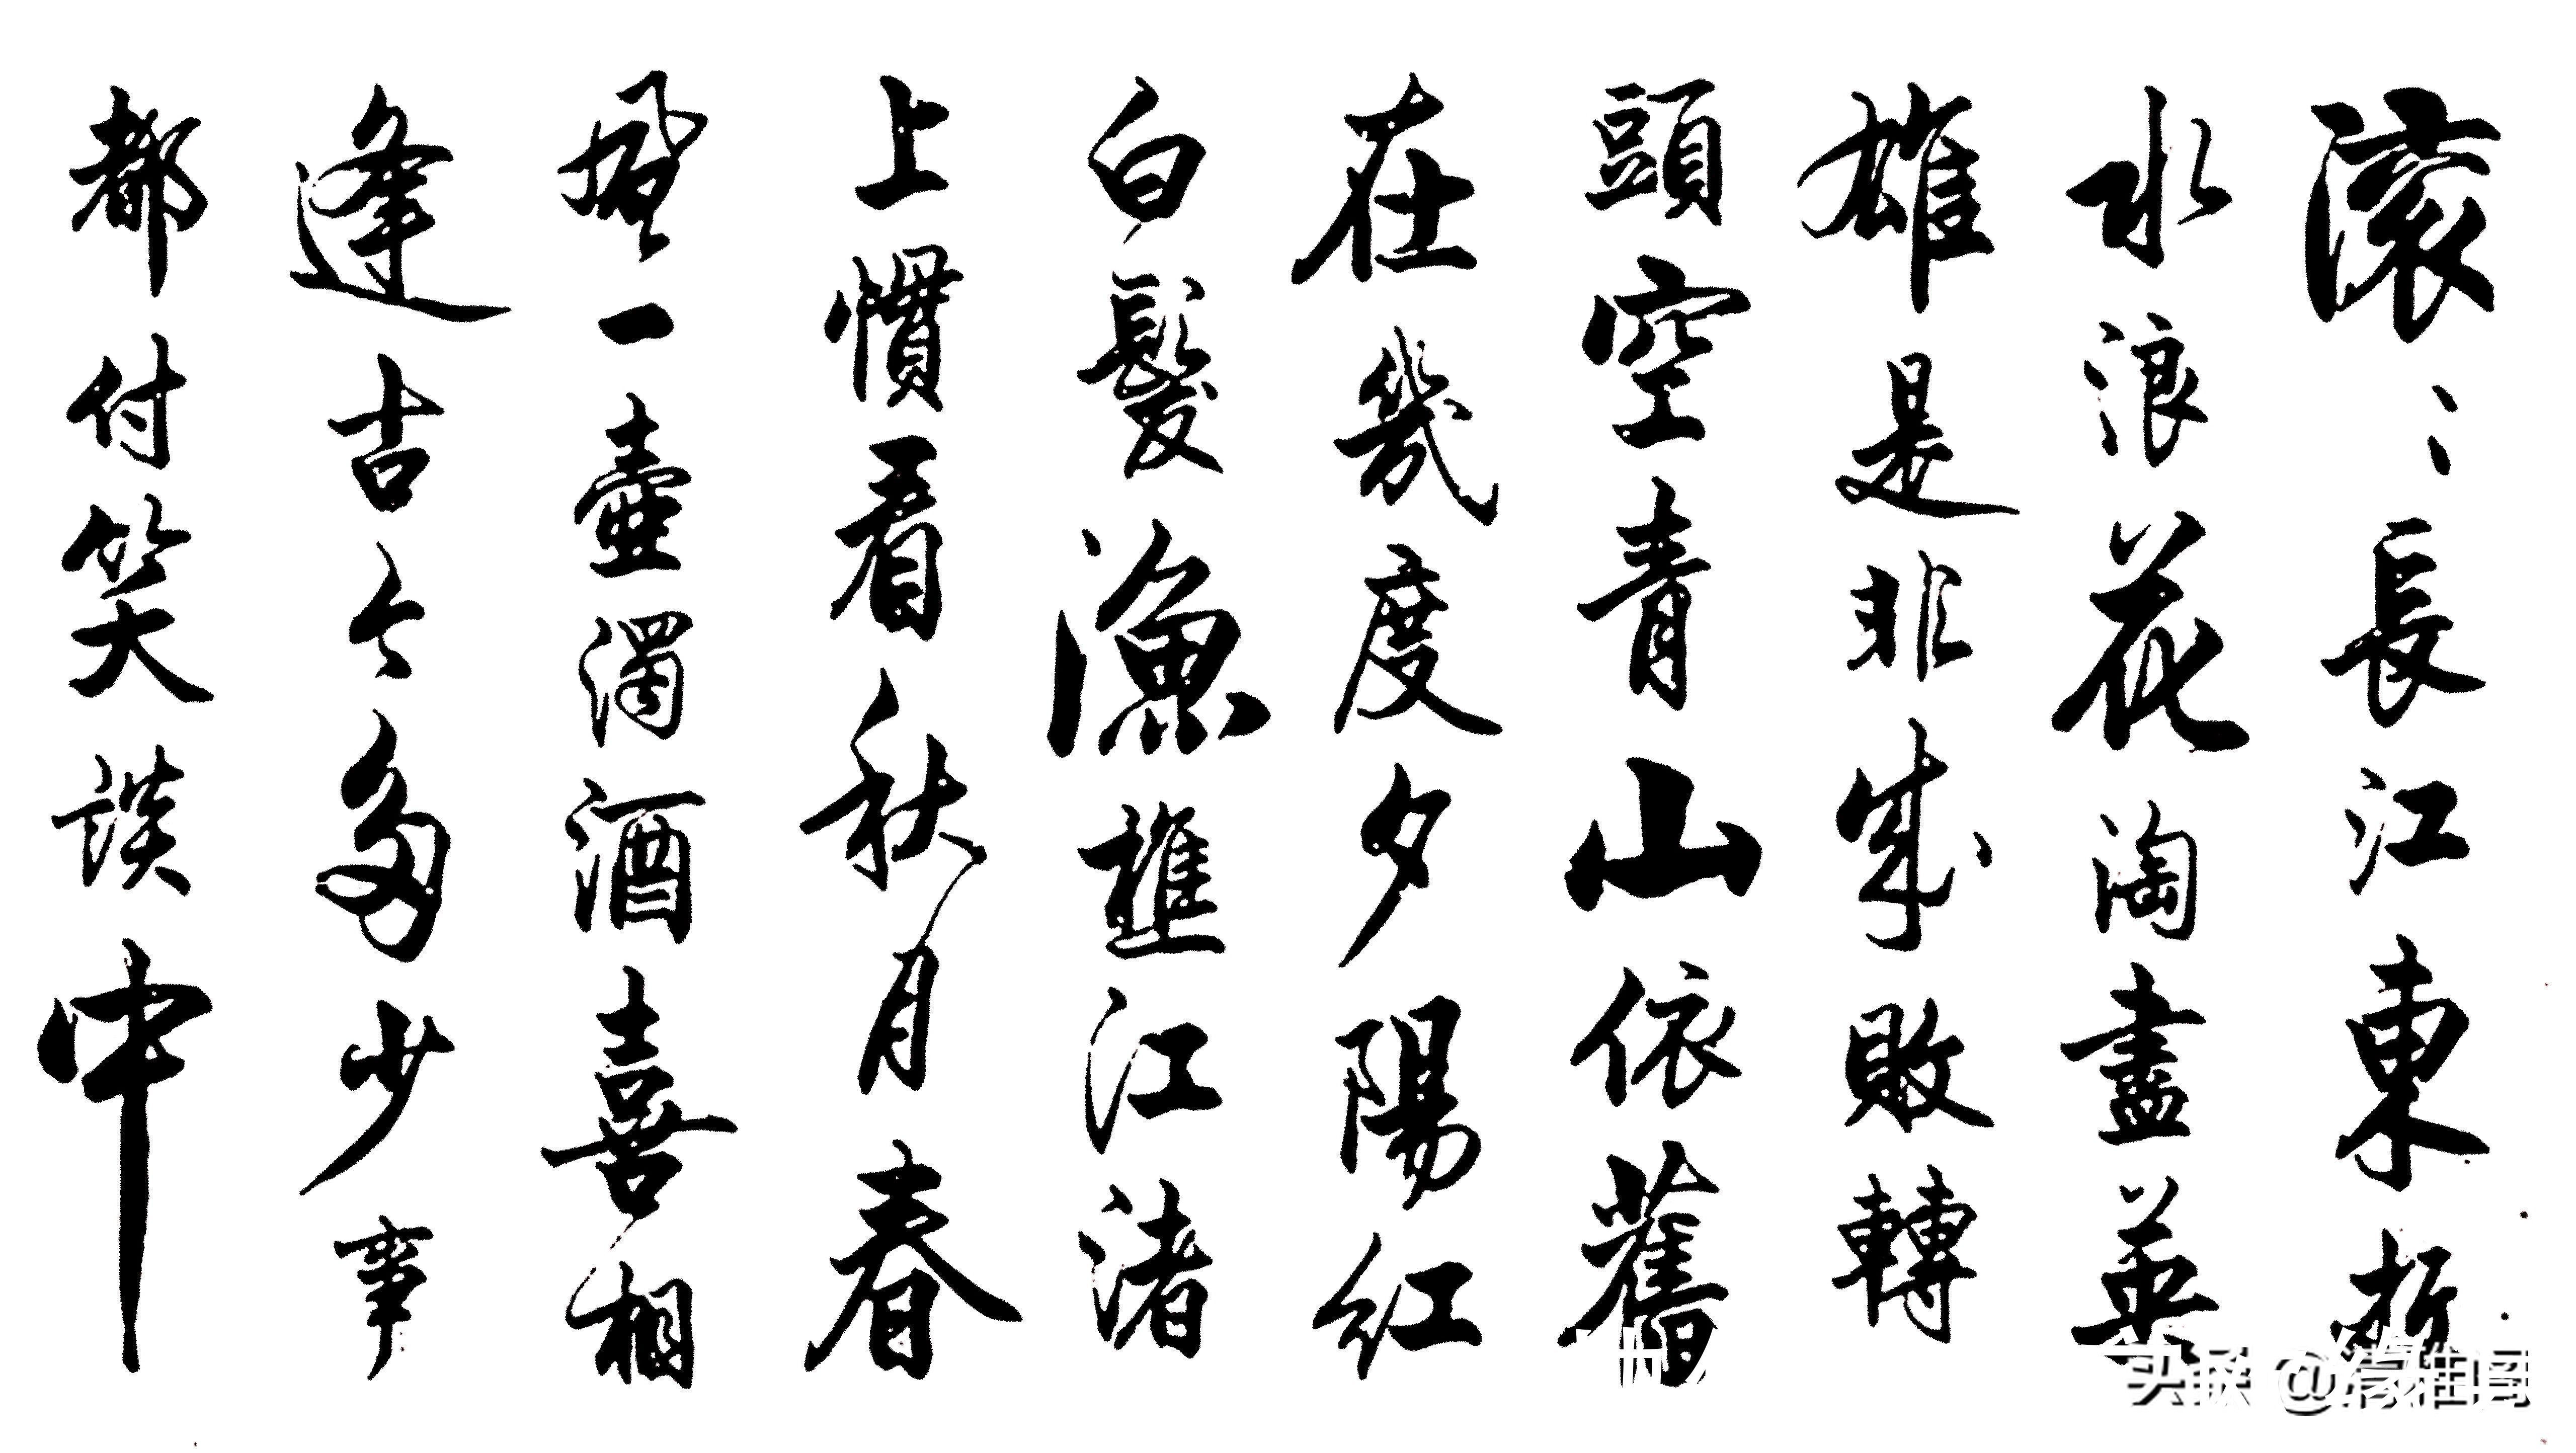 滚〻長江東逝
水浪花淘盡英
雄是非成敗轉
頭空青山依舊
在幾度夕陽紅
白髮漁樵江渚
上慣看秋月春
風一壺濁酒喜相
逢古今多少事
都付笑談中
头条 @缘雅阁